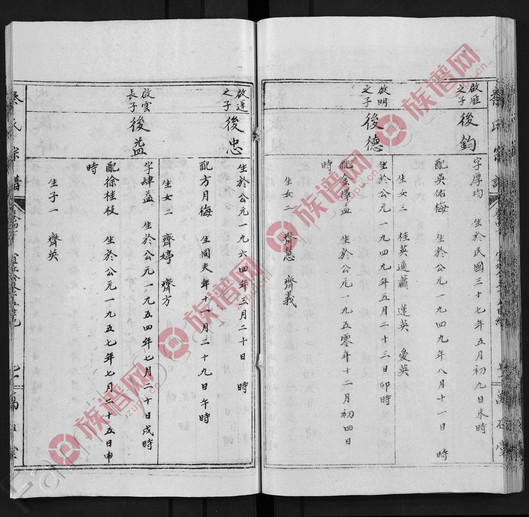 啟旺之子
後鈞
字厚均 生於民國三十七年五月初九日未時
配吳佑梅 生於公元一九四九年八月十一日 時
生女三 桂英適蕭 蓮英 愛英
啟明之子
後德
生於公元一九四九年五月二十三日卯時
生於公元一九五零年十二月初四日
時
生女二 齊慧 齊義
啟蓮之子
後忠
生於公元一九六四年三月二十日 時
配方月梅 生閏天年十一月二十九日午時
生女二 齊婷 齊方
啟雲長子
後益
字肆益 生於公元一九五四年七月二十日戌時
配徐桂枝 生於公元一九五七年七月二十五日申
時
生子一 齊英
族谱网